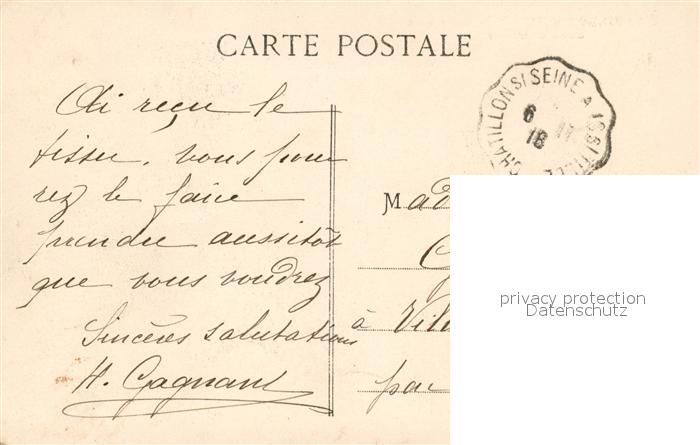 CARTE POSTALE
CHATILLON S/ SEINE A IS S/ TILLE
6 11
18
Ai reçu le
tissu, vous pour
rez le faire
prendre aussitôt
que vous voudrez
Sincères salutations
H. Gagnant
Mad
à Vil
par
privacy protection
Datenschutz